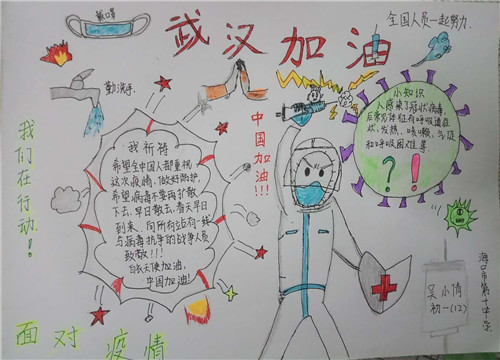 戴口罩
武汉加油
全国人员一起努力.
勤洗手.
小知识
人感染了冠状病毒,
后常见体征有呼吸道症
状、发热、咳嗽、气促
和呼吸困难等.
?!
我祈祷
希望全中国人都重视
这次疫情,做好防护,
希望病毒不要再扩散
下去,早日散去,春天早日
到来.向所有站在一线
与病毒抗争的战争人员
致敬!!!
白衣天使加油,
中国加油!
中国加油!!!
我们在行动!
海口市第十中学
吴小倩
初一(12)
面对疫情